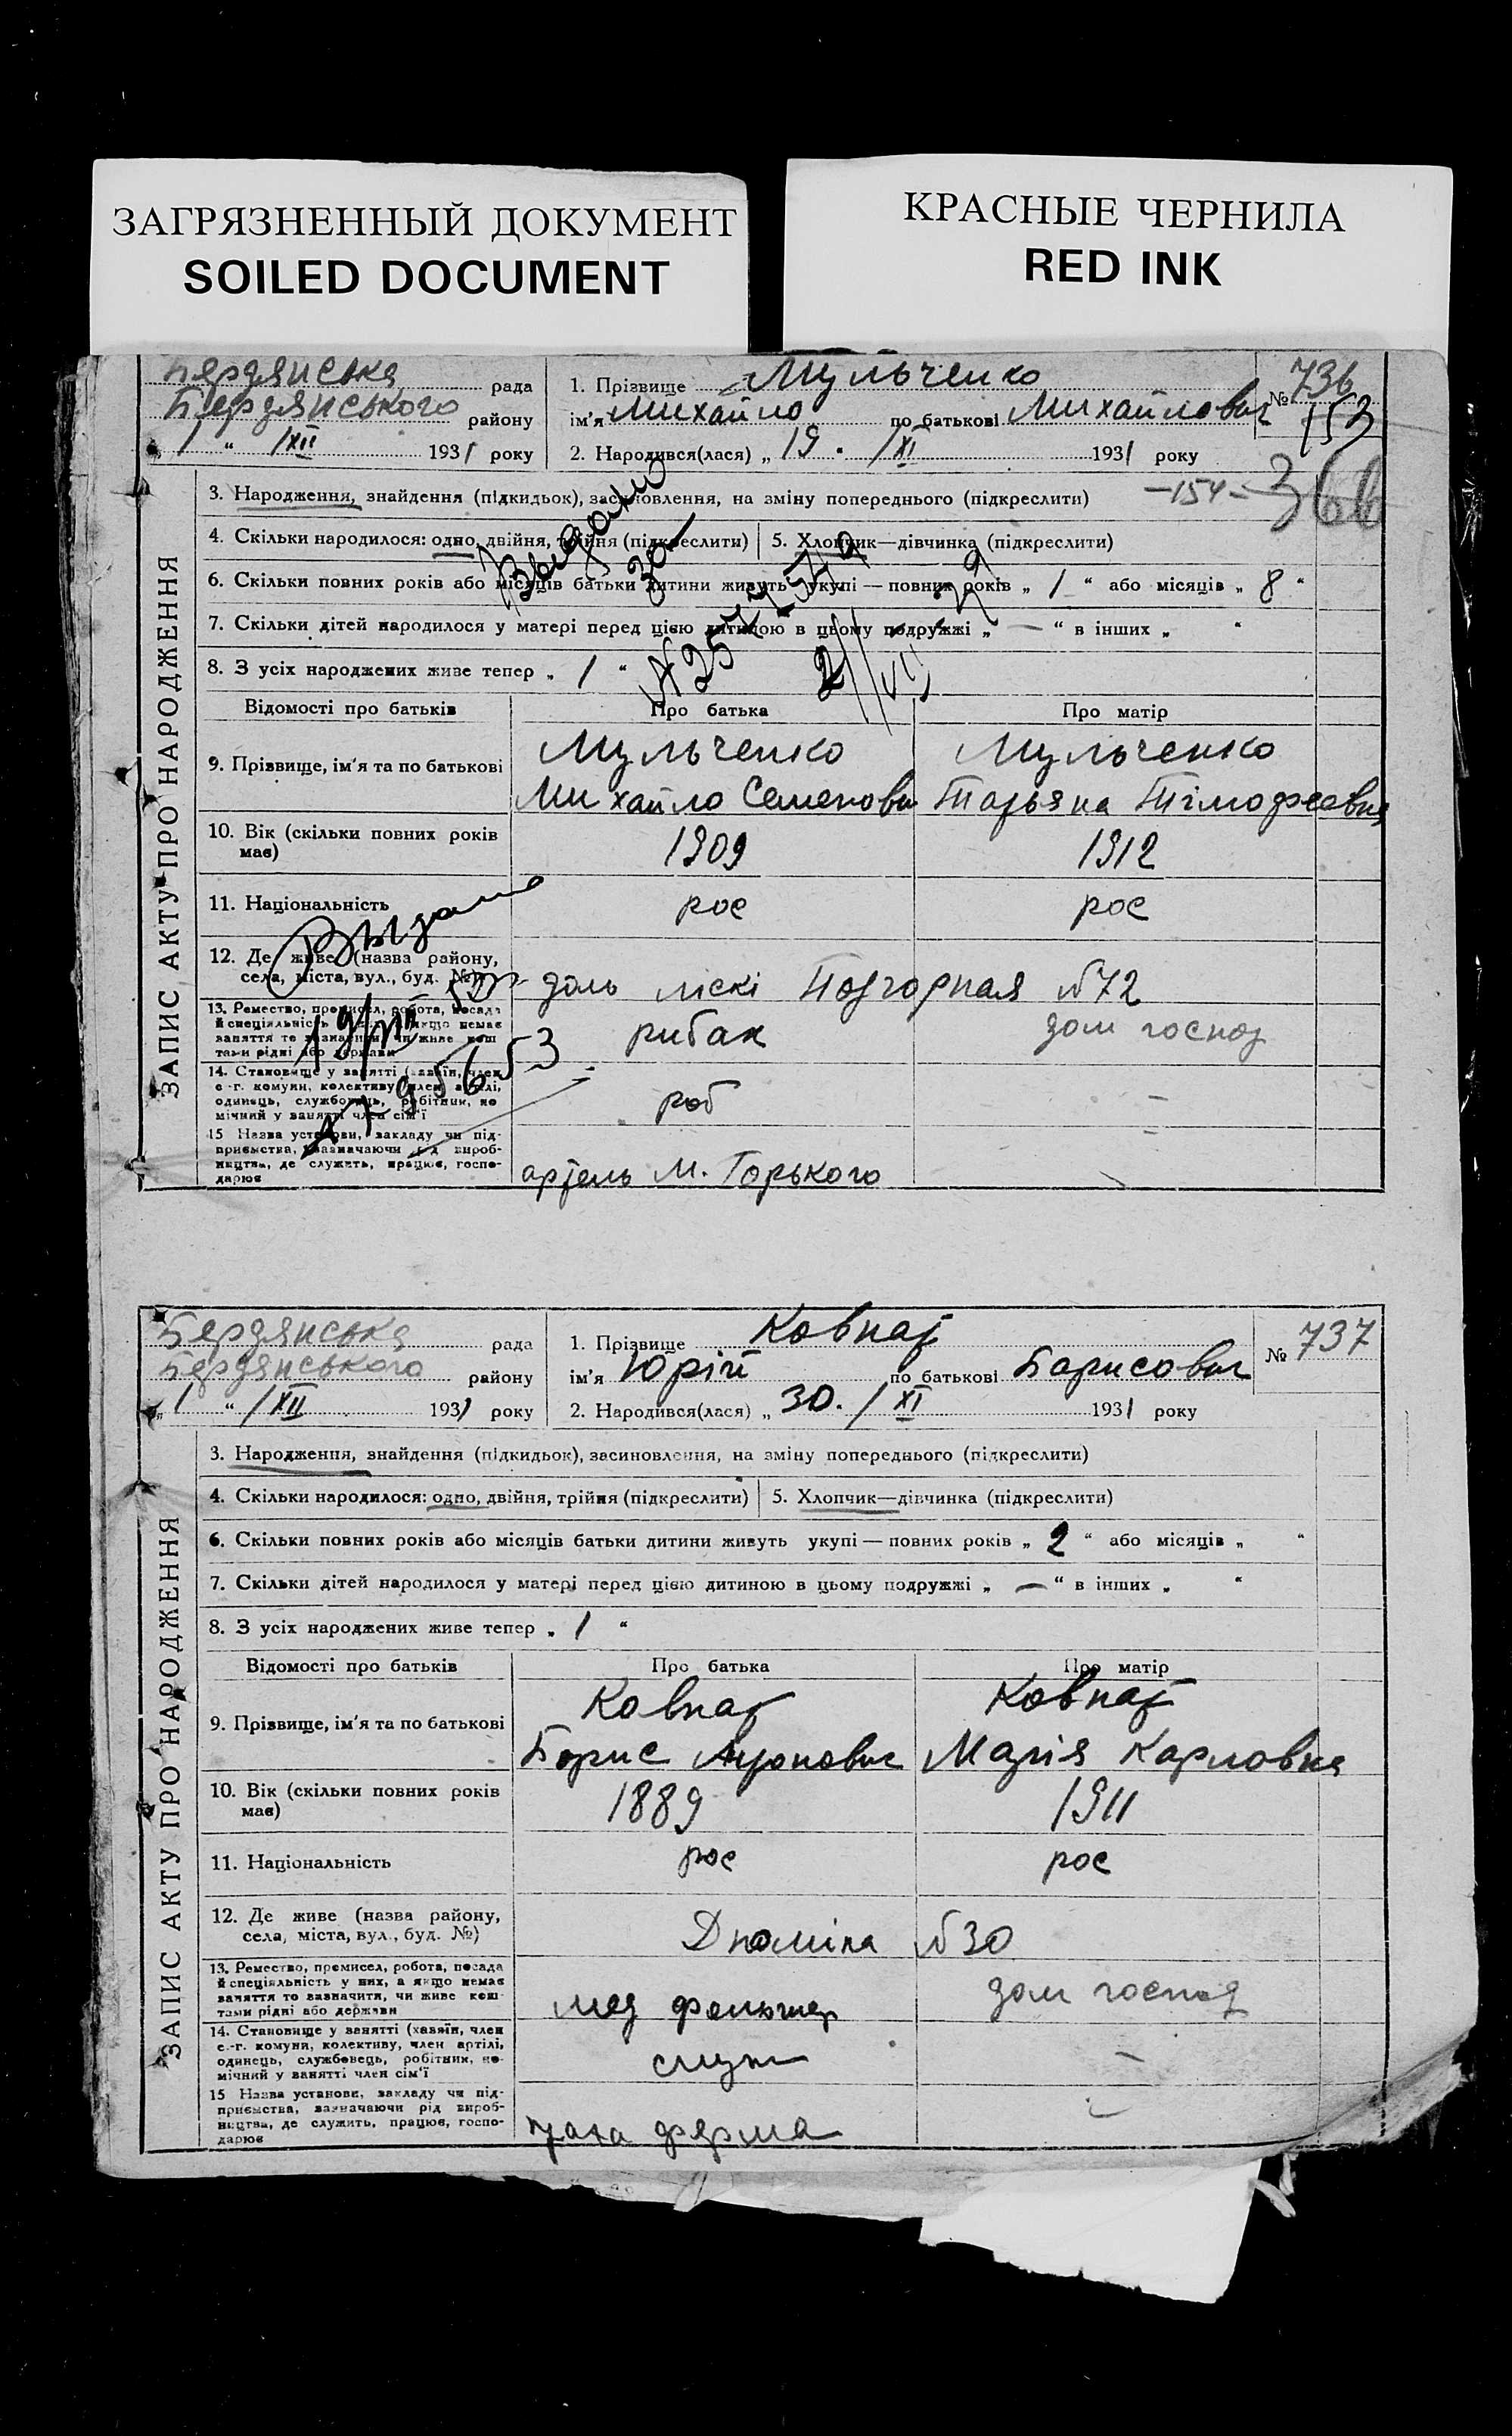 ЗАГРЯЗНЕННЫЙ ДОКУМЕНТ
SOILED DOCUMENT
КРАСНЫЕ ЧЕРНИЛА
RED INK
Бердянська рада
Бердянського району
„ 1 “ /XII 1931 року
1. Прізвище Мульченко
ім'я Михайло по батькові Михайлович
2. Народився(лася) „ 19. /XI 1931 року
№ 736
153
3. Народження, знайдення (підкидьок), засиновлення, на зміну попереднього (підкреслити)
-154-
366
4. Скільки народилося: одно, двійня, трійня (підкреслити)
5. Хлопчик—дівчинка (підкреслити)
6. Скільки повних років або місяців батьки дитини живуть укупі — повних років „ 1 “ або місяців „ 8 “
7. Скільки дітей народилося у матері перед цією дитиною в цьому подружжі „ — “ в інших „ “
8. З усіх народжених живе тепер „ 1 “
Відомості про батьків
Про батька
Про матір
9. Прізвище, ім'я та по батькові
Мульченко
Михайло Семенович
Мульченко
Татьяна Тімофеевна
10. Вік (скільки повних років має)
1909
1912
11. Національність
рос
рос
Выдано
12. Де живе (назва району, села, міста, вул., буд. №)
Подгорная №72
13. Ремество, промисел, робота, посада й спеціяльність у них, а якщо немає заняття то зазначити, чи живе коштами рідні або держави
рибак
дом господ
14. Становище у занятті (хазяїн, член с.-г. комуни, колективу, член артілі, одинець, службовець, робітник, помічний у занятті член сім'ї
роб
—
15 Назва установи, закладу чи підприємства, зазначаючи рід виробництва, де служить, працює, господарює
артель М. Горького
ЗАПИС АКТУ ПРО НАРОДЖЕННЯ
Бердянська рада
Бердянського району
„ 1 “ /XII 1931 року
1. Прізвище Ковнат
ім'я Юрій по батькові Борисович
2. Народився(лася) „ 30. /XI 1931 року
№ 737
3. Народження, знайдення (підкидьок), засиновлення, на зміну попереднього (підкреслити)
4. Скільки народилося: одно, двійня, трійня (підкреслити)
5. Хлопчик—дівчинка (підкреслити)
6. Скільки повних років або місяців батьки дитини живуть укупі — повних років „ 2 “ або місяців „ “
7. Скільки дітей народилося у матері перед цією дитиною в цьому подружжі „ — “ в інших „ “
8. З усіх народжених живе тепер „ 1 “
Відомості про батьків
Про батька
Про матір
9. Прізвище, ім'я та по батькові
Ковнат
Борис Аронович
Ковнат
Марія Карловна
10. Вік (скільки повних років має)
1889
1911
11. Національність
рос
рос
12. Де живе (назва району, села, міста, вул., буд. №)
№30
13. Ремество, промисел, робота, посада й спеціяльність у них, а якщо немає заняття то зазначити, чи живе коштами рідні або держави
мед фельшер
дом господ
14. Становище у занятті (хазяїн, член с.-г. комуни, колективу, член артілі, одинець, службовець, робітник, помічний у занятті член сім'ї
служ
—
15 Назва установи, закладу чи підприємства, зазначаючи рід виробництва, де служить, працює, господарює
ферма
ЗАПИС АКТУ ПРО НАРОДЖЕННЯ